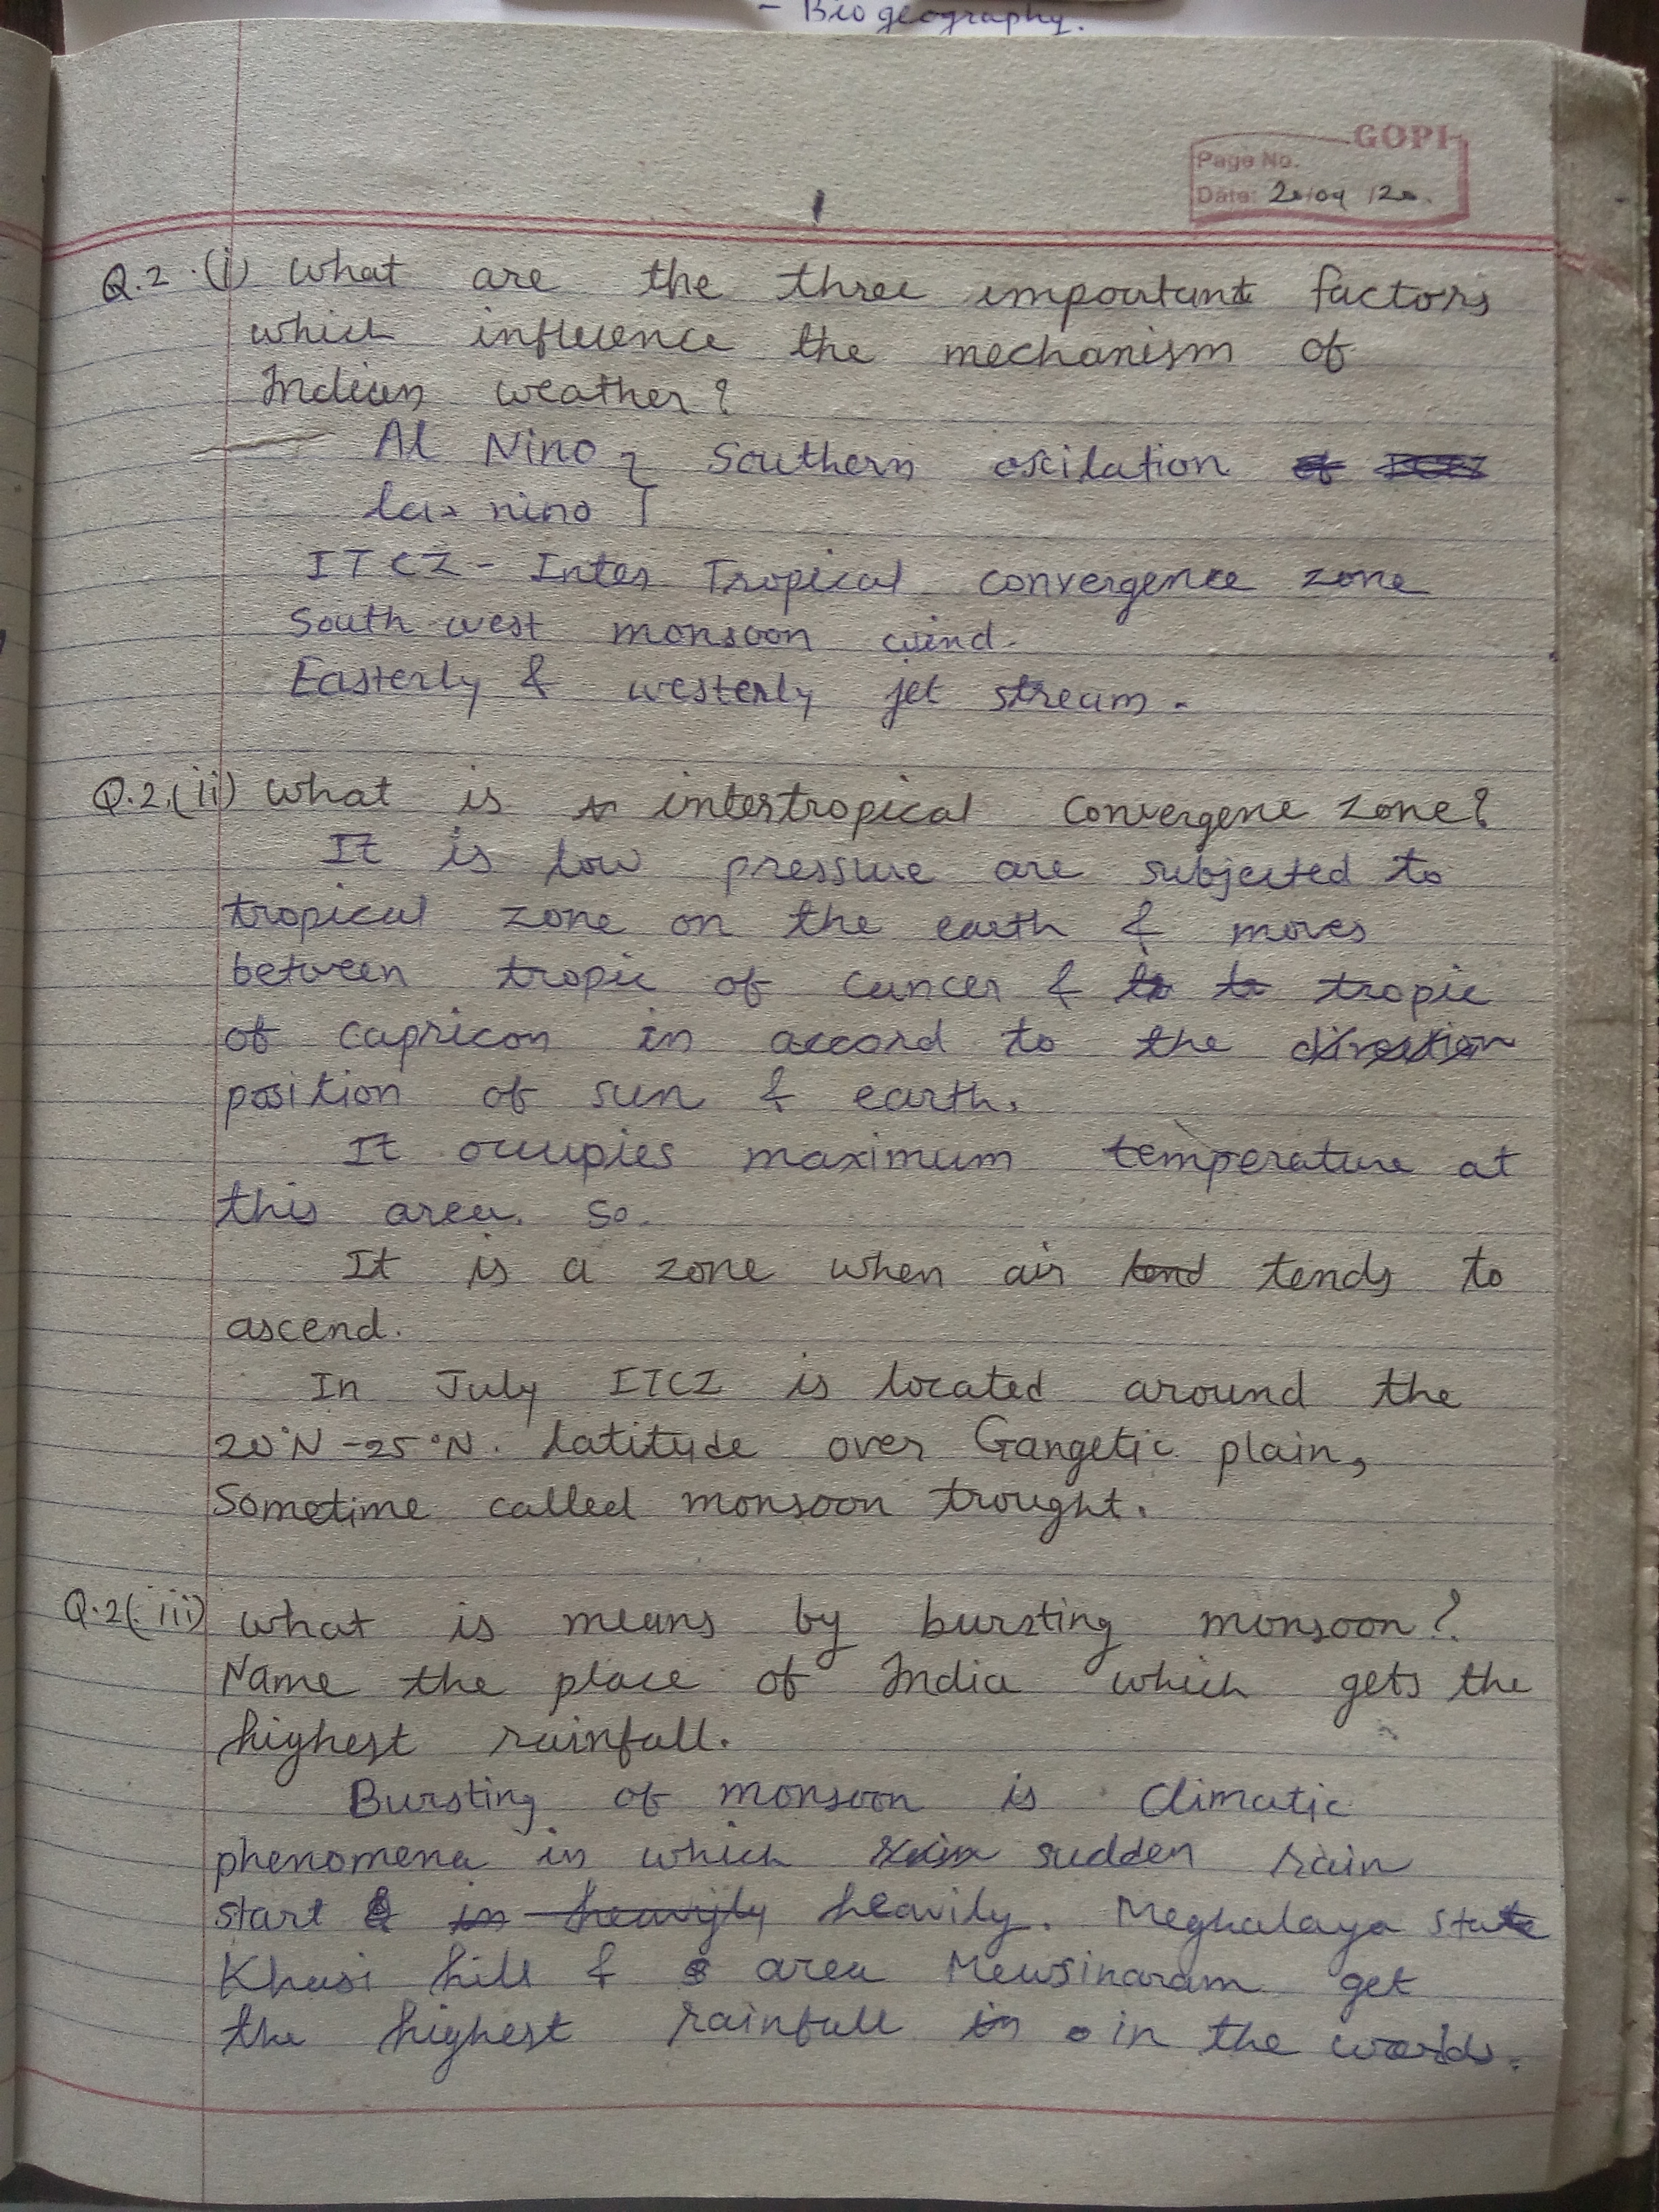 - Biogeography.
GOPI
Page No.
Date: 20/04/20.
Q.2 (i) What are the three important factors
which influence the mechanism of
Indian weather?
Al Nino } Southern oscilation
la- nino
ITCZ - Inter Tropical convergence zone
South west monsoon wind.
Easterly & westerly jet stream.
Q.2.(ii) What is intertropical Convergene zone?
It is low pressure are subjected to
tropical zone on the earth & moves
between tropic of cancer & tropic
of capricon in accord to the direction
position of sun & earth.
It occupies maximum temperature at
this area. So.
It is a zone when air tend tends to
ascend.
In July ITCZ is located around the
20°N-25°N. latitude over Gangetic plain,
Sometime called monsoon trought.
Q.2(iii) What is means by bursting monsoon?
Name the place of India which gets the
highest rainfall.
Bursting of monsoon is Climatic
phenomena in which rain sudden rain
start & in heavigly heavily. Meghalaya state
Khasi hill & area Mewsinaram get
the highest rainfall in in the world.